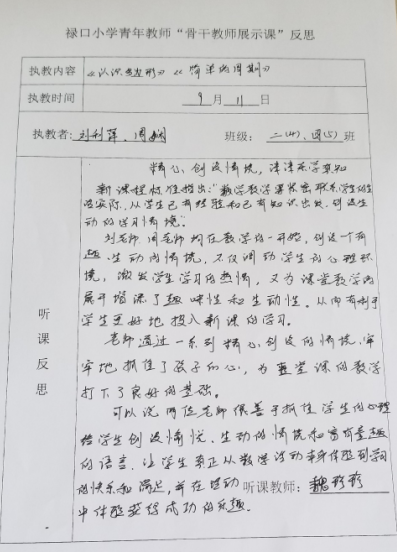 禄口小学青年教师“骨干教师展示课”反思
执教内容 《认识角形》《简单的周期》
执教时间 9月11日
执教者: 刘利萍、周娴 班级: 二(4)、四(5)班
听课反思
精心创设情境,津津乐学新知
新课程标准指出:“数学教学要紧密联系学生的生
活实际,从学生已有经验和已有知识出发,创设生
动的学习情境”。
刘老师、周老师均在教学的一开始,创设一个有
趣、生动的情境,不仅调动学生的心理环
境,激发学生学习的热情,又为课堂教学的
展开增添了趣味性和生动性。从而有利于
学生更好地投入新课的学习。
老师通过一系列精心创设的情境,牢
牢地抓住了孩子的心,为整堂课的教学
打下了良好的基础。
可以说两位老师很善于抓住学生的心理
给学生创设愉悦、生动的情境和富有童趣
的语言,让学生真正从数学活动本身体验到学习
的快乐和满足,并在活动 听课教师: 魏珍珍
中体验获得成功的乐趣。